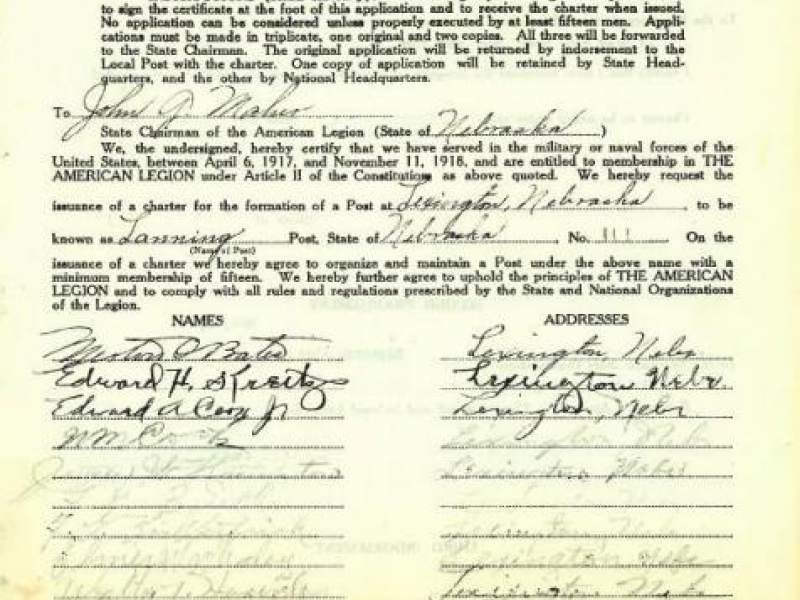 to sign the certificate at the foot of this application and to receive the charter when issued.
No application can be considered unless properly executed by at least fifteen men. Appli-
cations must be made in triplicate, one original and two copies. All three will be forwarded
to the State Chairman. The original application will be returned by indorsement to the
Local Post with the charter. One copy of application will be retained by State Head-
quarters, and the other by National Headquarters.
To John G. Maher
State Chairman of the American Legion (State of Nebraska )
We, the undersigned, hereby certify that we have served in the military or naval forces of the
United States, between April 6, 1917, and November 11, 1918, and are entitled to membership in THE
AMERICAN LEGION under Article II of the Constitution as above quoted. We hereby request the
issuance of a charter for the formation of a Post at Lexington, Nebraska , to be
known as Lanning Post, State of Nebraska , No. 111 On the
(Name of Post)
issuance of a charter we hereby agree to organize and maintain a Post under the above name with a
minimum membership of fifteen. We hereby further agree to uphold the principles of THE AMERICAN
LEGION and to comply with all rules and regulations prescribed by the State and National Organizations
of the Legion.
NAMES ADDRESSES
Bates Lexington, Nebr
Edward H. Lexington Nebr.
Edward A Jr Lexington, Nebr
Wm Lexington Nebr
Lexington Nebr
Nebr
Lexington Nebr
Lexington Nebr